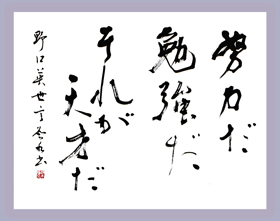 努力だ
勉強だ
それが
天才だ
野口英世